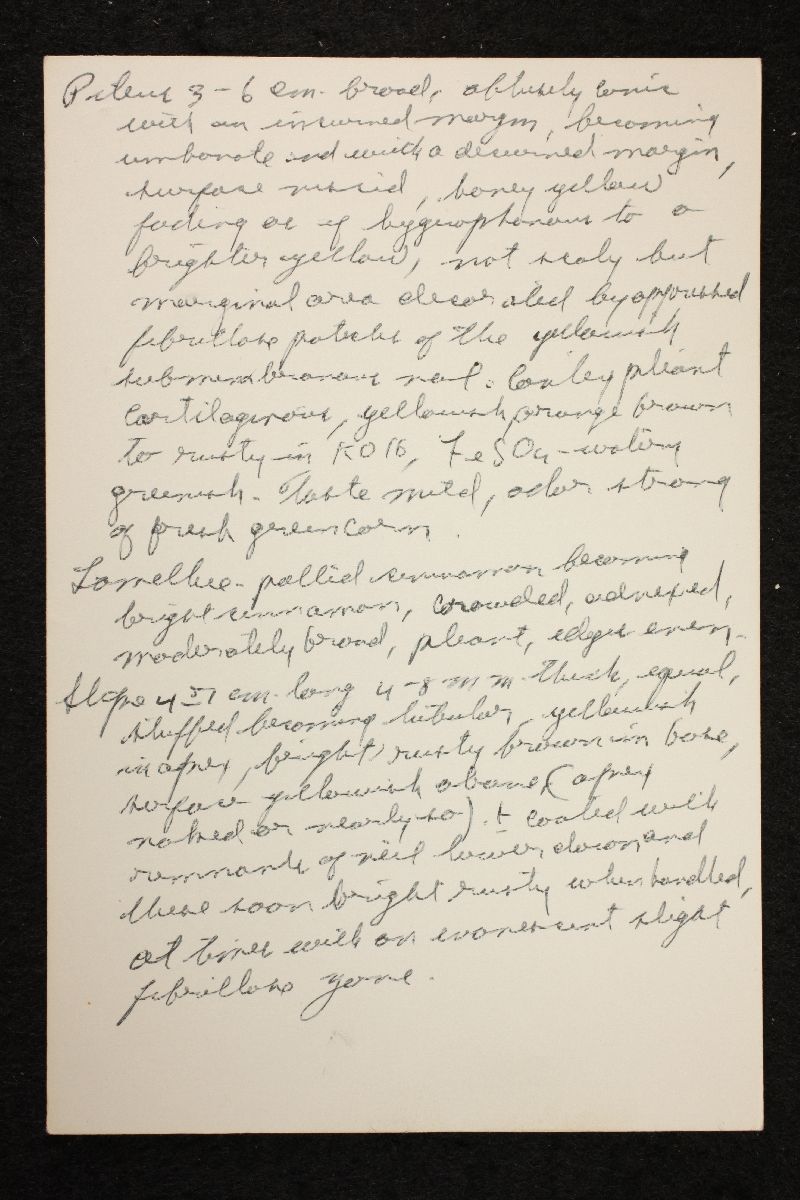 Pileus 3-6 cm. broad, obtusely conic
with an incurved margin, becoming
umbonate and with a decurved margin,
surface viscid, honey yellow
fading as if hygrophanous to a
brighter yellow, not scaly but
marginal area decorated by appressed
fibrillose patches of the yellowish
submembranous veil. Context pliant
cartilaginous, yellowish, orange brown
to rusty in KOH, FeSO4 - watery
greenish. Taste mild, odor strong
of fresh green corn.
Lamellae - pallid cinnamon becoming
bright cinnamon, crowded, adnexed,
moderately broad, pliant, edges even.
Stipe 4-7 cm. long 4-8 mm thick, equal,
stuffed becoming tubular, yellowish
in apex, bright rusty brown in base,
surface yellowish above (apex
naked or nearly so) ± coated with
remnants of veil lower down and
these soon bright rusty when handled,
at times with an evanescent slight
fibrillose zone.